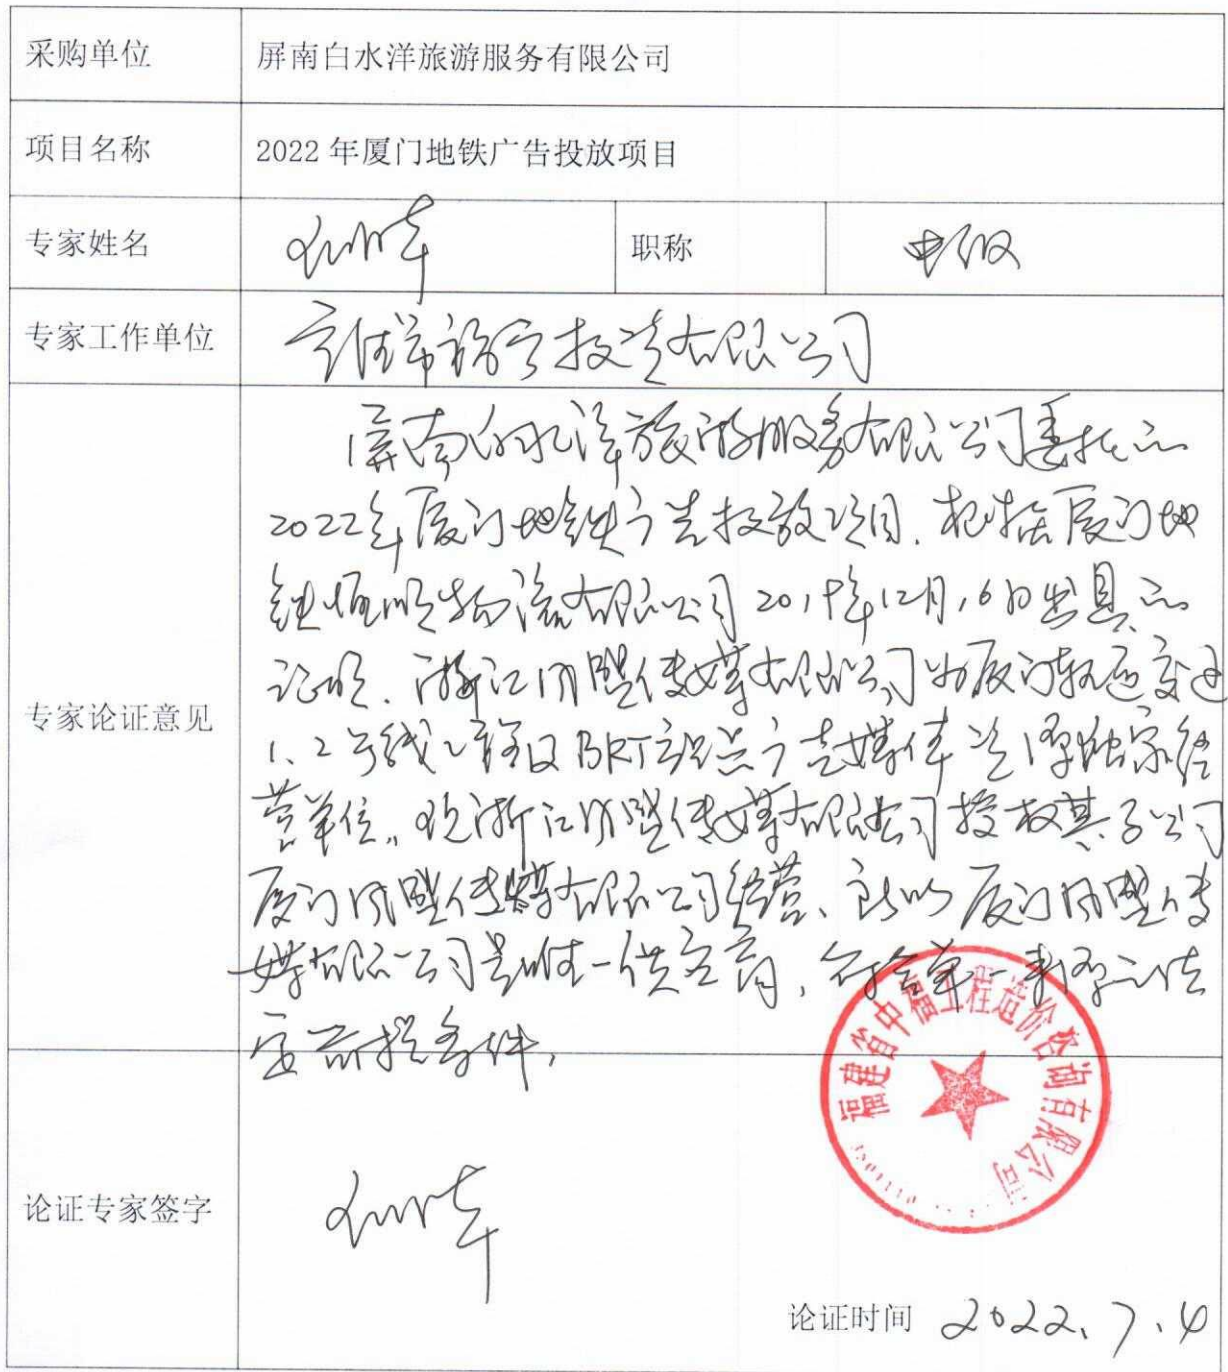 采购单位 屏南白水洋旅游服务有限公司
项目名称 2022年厦门地铁广告投放项目
专家姓名 职称 中级
专家工作单位 投资有限公司
屏南白水洋旅游服务有限公司委托的
2022年厦门地铁广告投放项目.根据厦门地
铁恒顺物流有限公司2019年12月16日出具的
证明.浙江闪盟传媒有限公司为厦门轨道交通
专家论证意见
1、2号线以及BRT站点广告媒体资源独家经
营单位。现浙江闪盟传媒有限公司授权其子公司
厦门闪盟传媒有限公司经营、所以厦门闪盟传
媒有限公司是唯一供应商,符合单一来源的法
定前提条件,
福建省中福工程造价咨询有限公司
论证专家签字
论证时间 2022.7.4